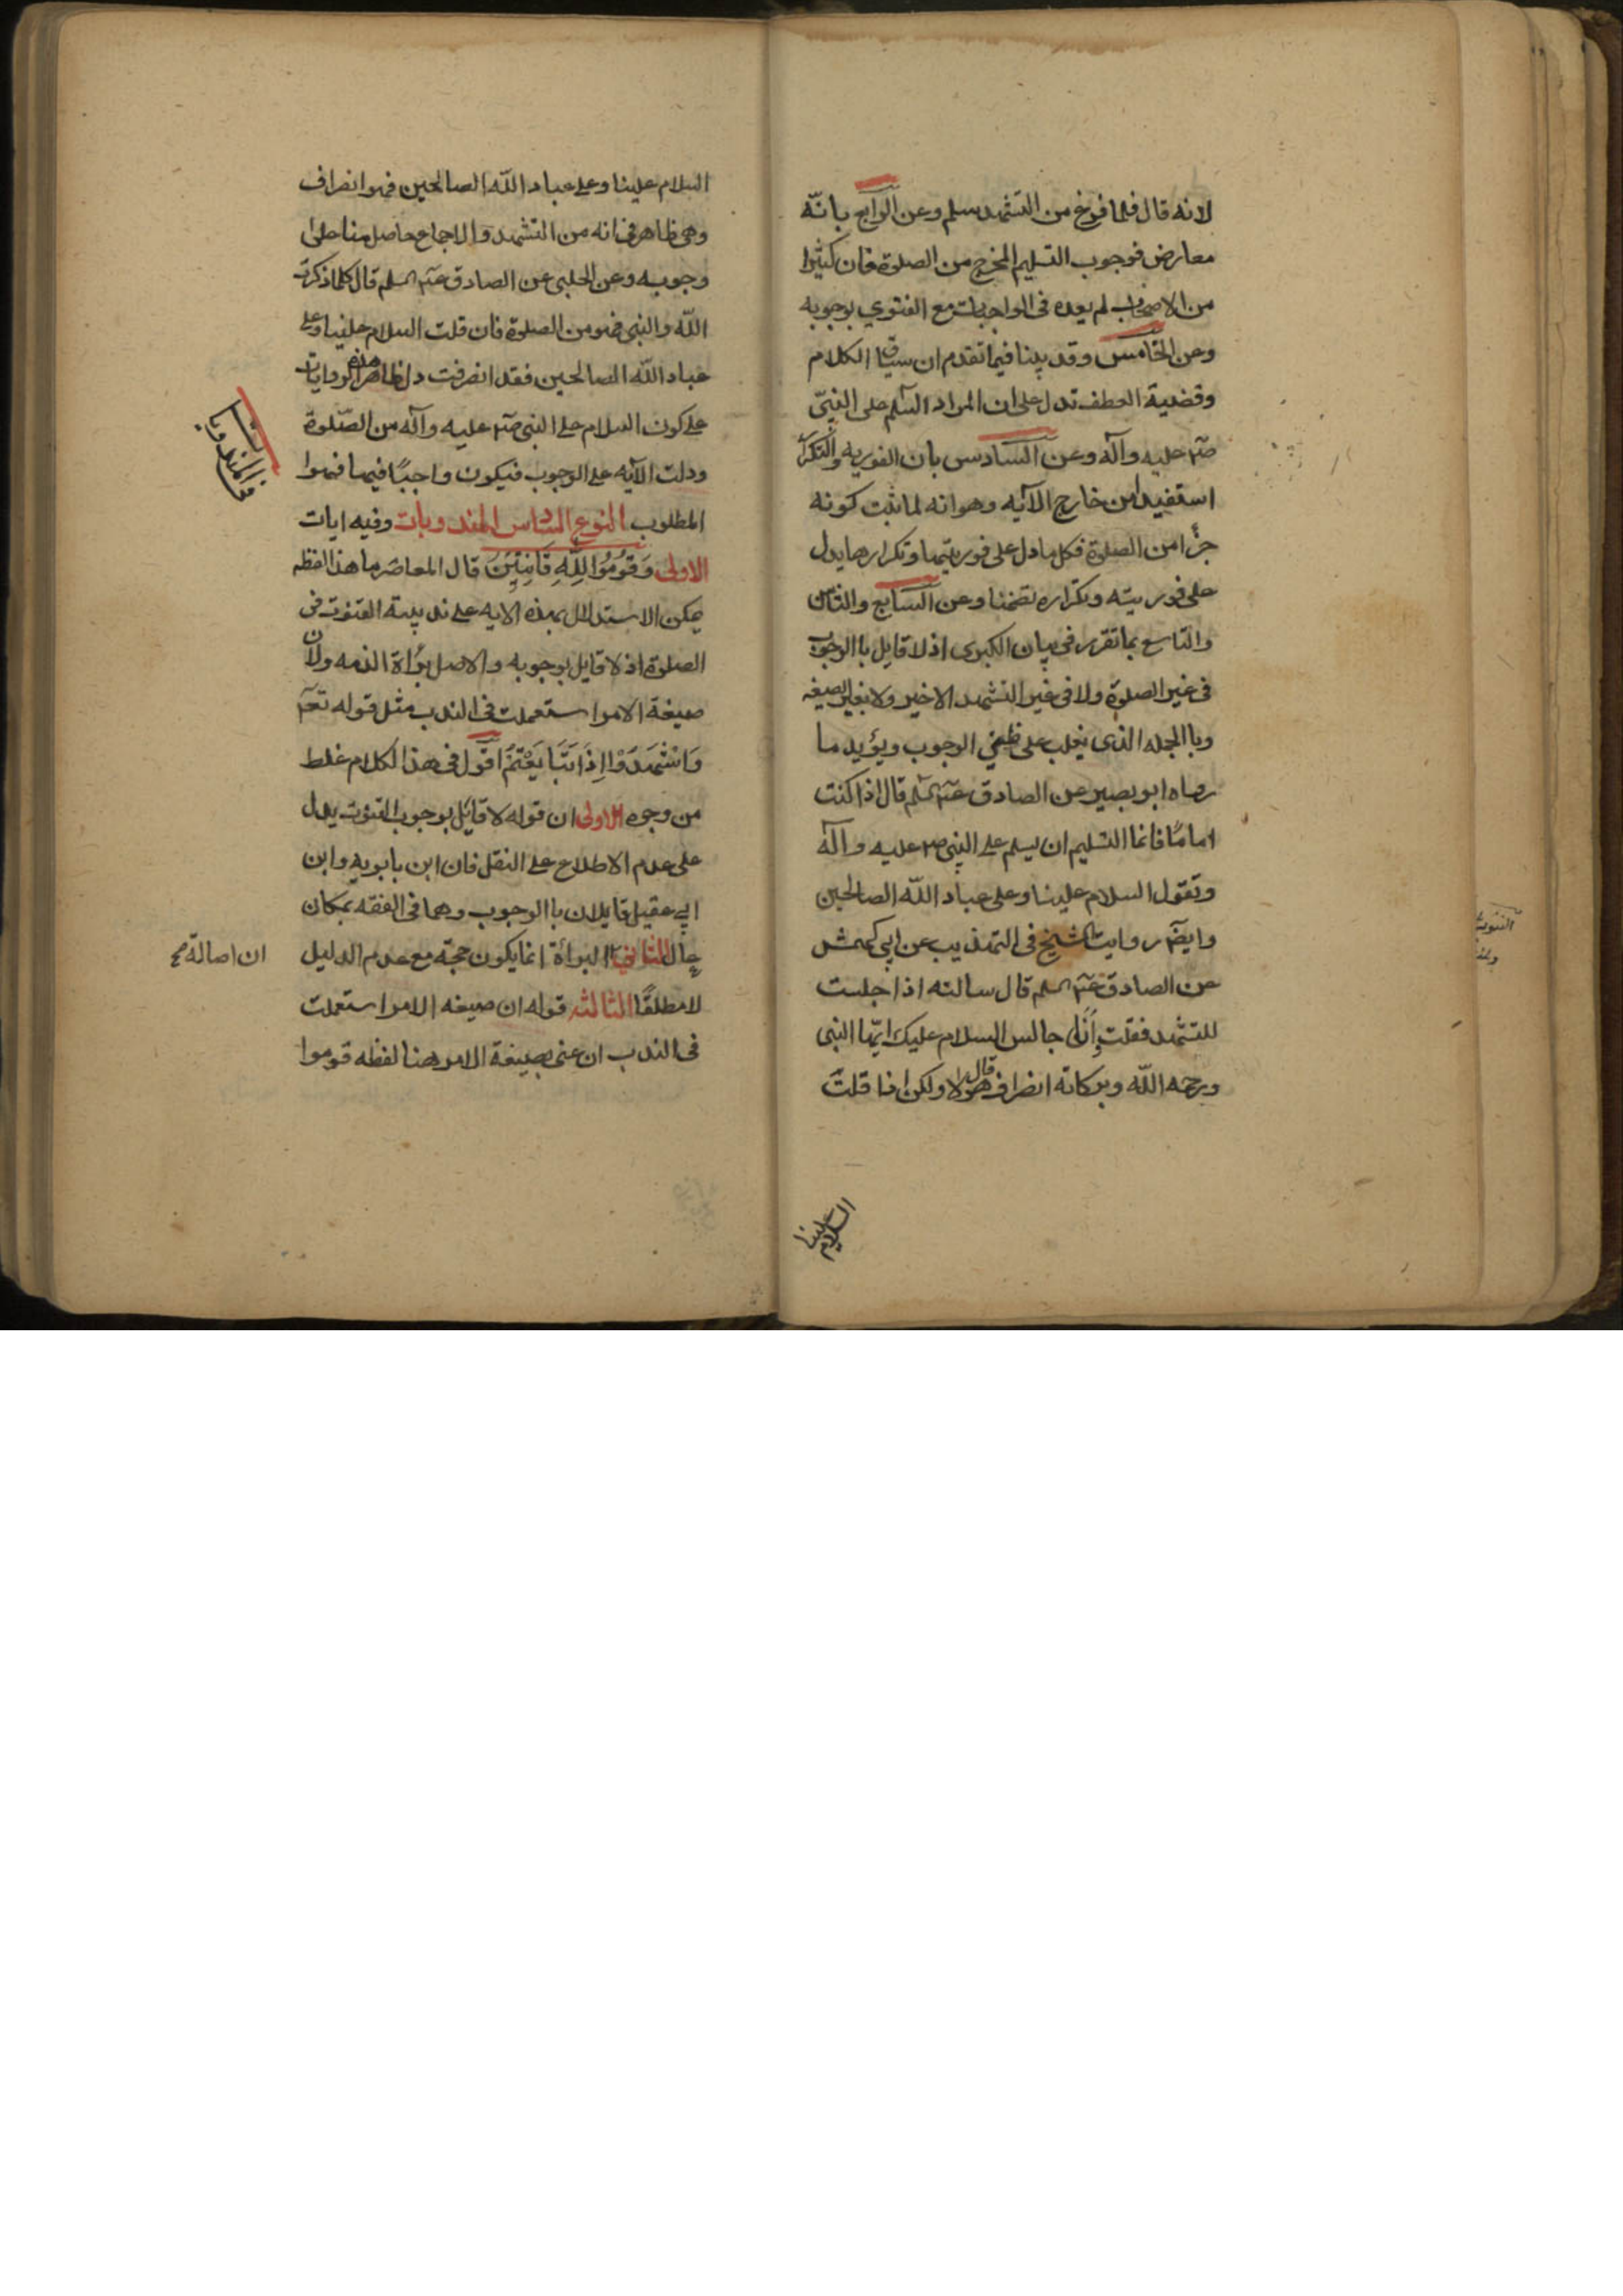 لانه قال فلما فرغ من التشهد سلم وعن الرابع بانّه
معارض فوجوب التسليم المخرج من الصلوة فان كثيرا
من الاصحاب لم يعده فى الواجبات مع الفتوي بوجوبه
وعن الخامس وقد بينا فيما تقدم ان سياق الكلام
وقضية العطف تدل على ان المراد السّلم على النبيّ
صلّم عليه وآله وعن السّادس بان الفوريه والتكرار
استفيدا من خارج الآيه وهو انه لما ثبت كونه
جزأ من الصلوة فكل ما دل على فوريتها وتكرارها يدل
على فوريته وتكراره تضمنا وعن السّابع والثامن
والتاسع بما تقرر فى بيان الكبرى اذ لا قايل باالوجوب
فى غير الصلوة ولا فى غير التشهد الاخير ولا بغير الصيغه
وباالجمله الذى يغلب على ظني الوجوب ويؤيد ما
رواه ابو بصير عن الصادق عليه السلم قال اذا كنت
اماما فانما التسليم ان يسلم على النبى ص عليه وآله
وتقول السلام علينا وعلى عباد الله الصالحين
وايضًا روايت الشيخ فى التهذيب عن ابي كهمش
عن الصادق عليه السلم قال سالته اذا جلست
للتشهد فقلت وانا جالس السلام عليك ايّها النبى
ورحمه الله وبركاته انصراف هو قال لا ولكن اذا قلت
السلام علينا
السلام علينا وعلى عباد الله الصالحين فهو انصراف
وهى ظاهر فى انه من التشهد والاجماع حاصل منا على
وجوبه وعن الحلبى عن الصادق عليه السلم قال كلما ذكرت
الله والنبى فهو من الصلوة فان قلت السلام علينا وعلى
عباد الله الصالحين فقد انصرفت دل ظاهر هذه الروايات
على كون السلام على النبى صلّم عليه وآله من الصّلوة
ودلت الآيه على الوجوب فيكون واجبًا فيها فهوا
المطلوب النوع السادس المندوبات وفيه ايات
الاولى وَقُومُوا لِلَّهِ قَانِتِينَ قال المعاصر ما هذا لفظه
يمكن الاستدلال بهذه الايه على ندبية القنوت فى
الصلوة اذ لا قايل بوجوبه والاصل برأة الذمه ولان
صيغة الامر استعملت فى الندب مثل قوله تعم
وَاشْهَدَوْا اِذَا تَبَايَعْتُمْ اقول فى هذا الكلام غلط
من وجوه الاولى ان قوله لا قائل بوجوب القنوت يدل
على عدم الاطلاع على النقل فان ابن بابويه وابن
ابي عقيل قايلان باالوجوب وهما فى الفقه بمكان
عال الثاني البرأة انما يكون حجة مع عدم الدليل
ان اصالة صح
لا مطلقًا الثالثه قوله ان صيغه الامر استعملت
فى الندب ان عنى بصيغة الامر هنا لفظه قوموا
فى المندوبات